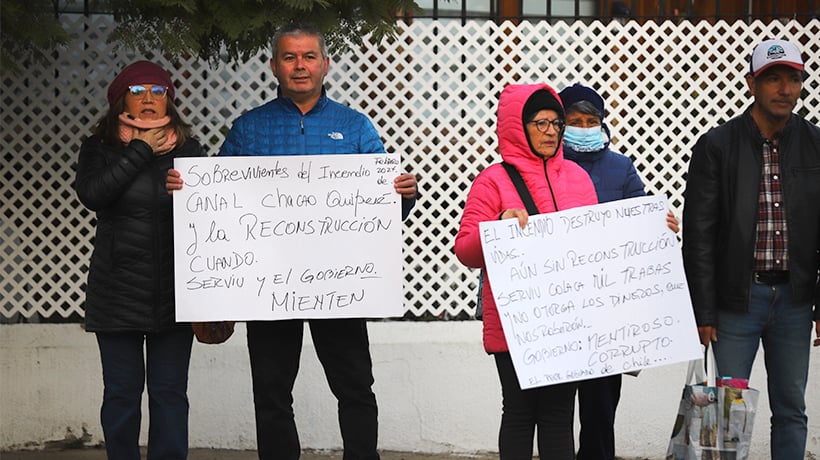 SOBREVIVIENTES DEL INCENDIO FEBRERO 2024 de
CANAL CHACAO QUILPUÉ.
y la RECONSTRUCCIÓN
CUANDO.
SERVIU Y EL GOBIERNO.
MIENTEN
EL INCENDIO DESTRUYO NUESTRAS
VIDAS.
AÚN SIN RECONSTRUCCIÓN
SERVIU COLOCA MIL TRABAS
Y NO OTORGA LOS DINEROS, QUE
NOS ROBARÓN..
GOBIERNO: MENTIROSO.
CORRUPTO.
EL PEOR GOBIERNO de CHILE...
THE NORTH FACE